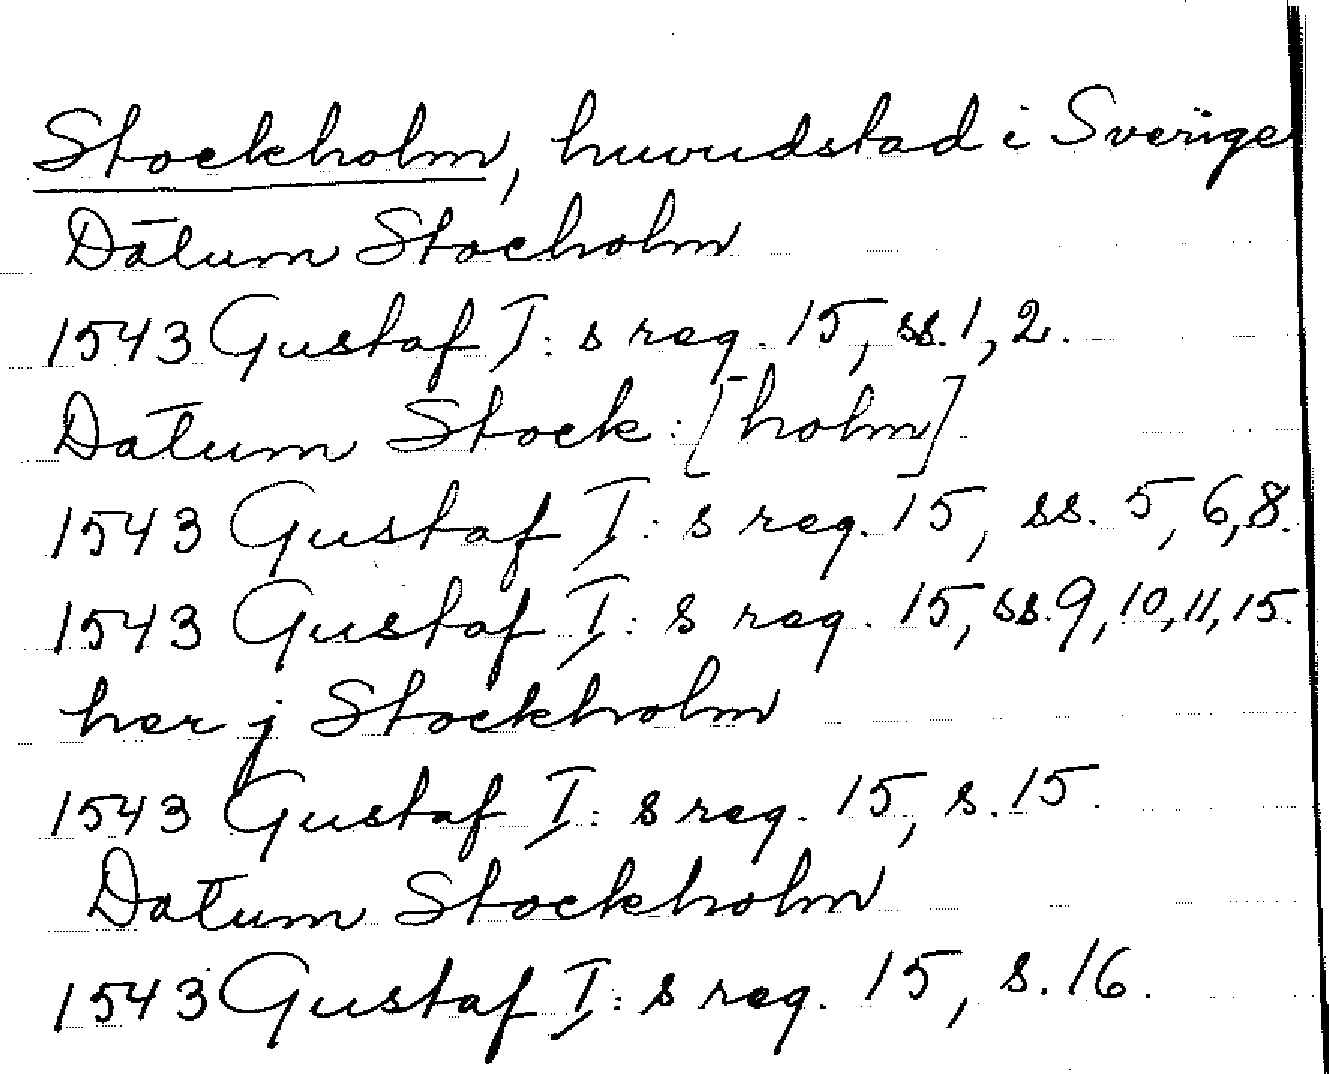 Stockholm, huvudstad i Sverige
Datum Stocholm
1543 Gustaf I:s reg. 15, ss. 1, 2.
Datum Stock:[holm].
1543 Gustaf I:s reg. 15, ss. 5, 6, 8.
1543 Gustaf I:s reg. 15, ss. 9, 10, 11, 15.
her j Stockholm
1543 Gustaf I:s reg. 15, s. 15.
Datum Stockholm
1543 Gustaf I:s reg. 15, s. 16.